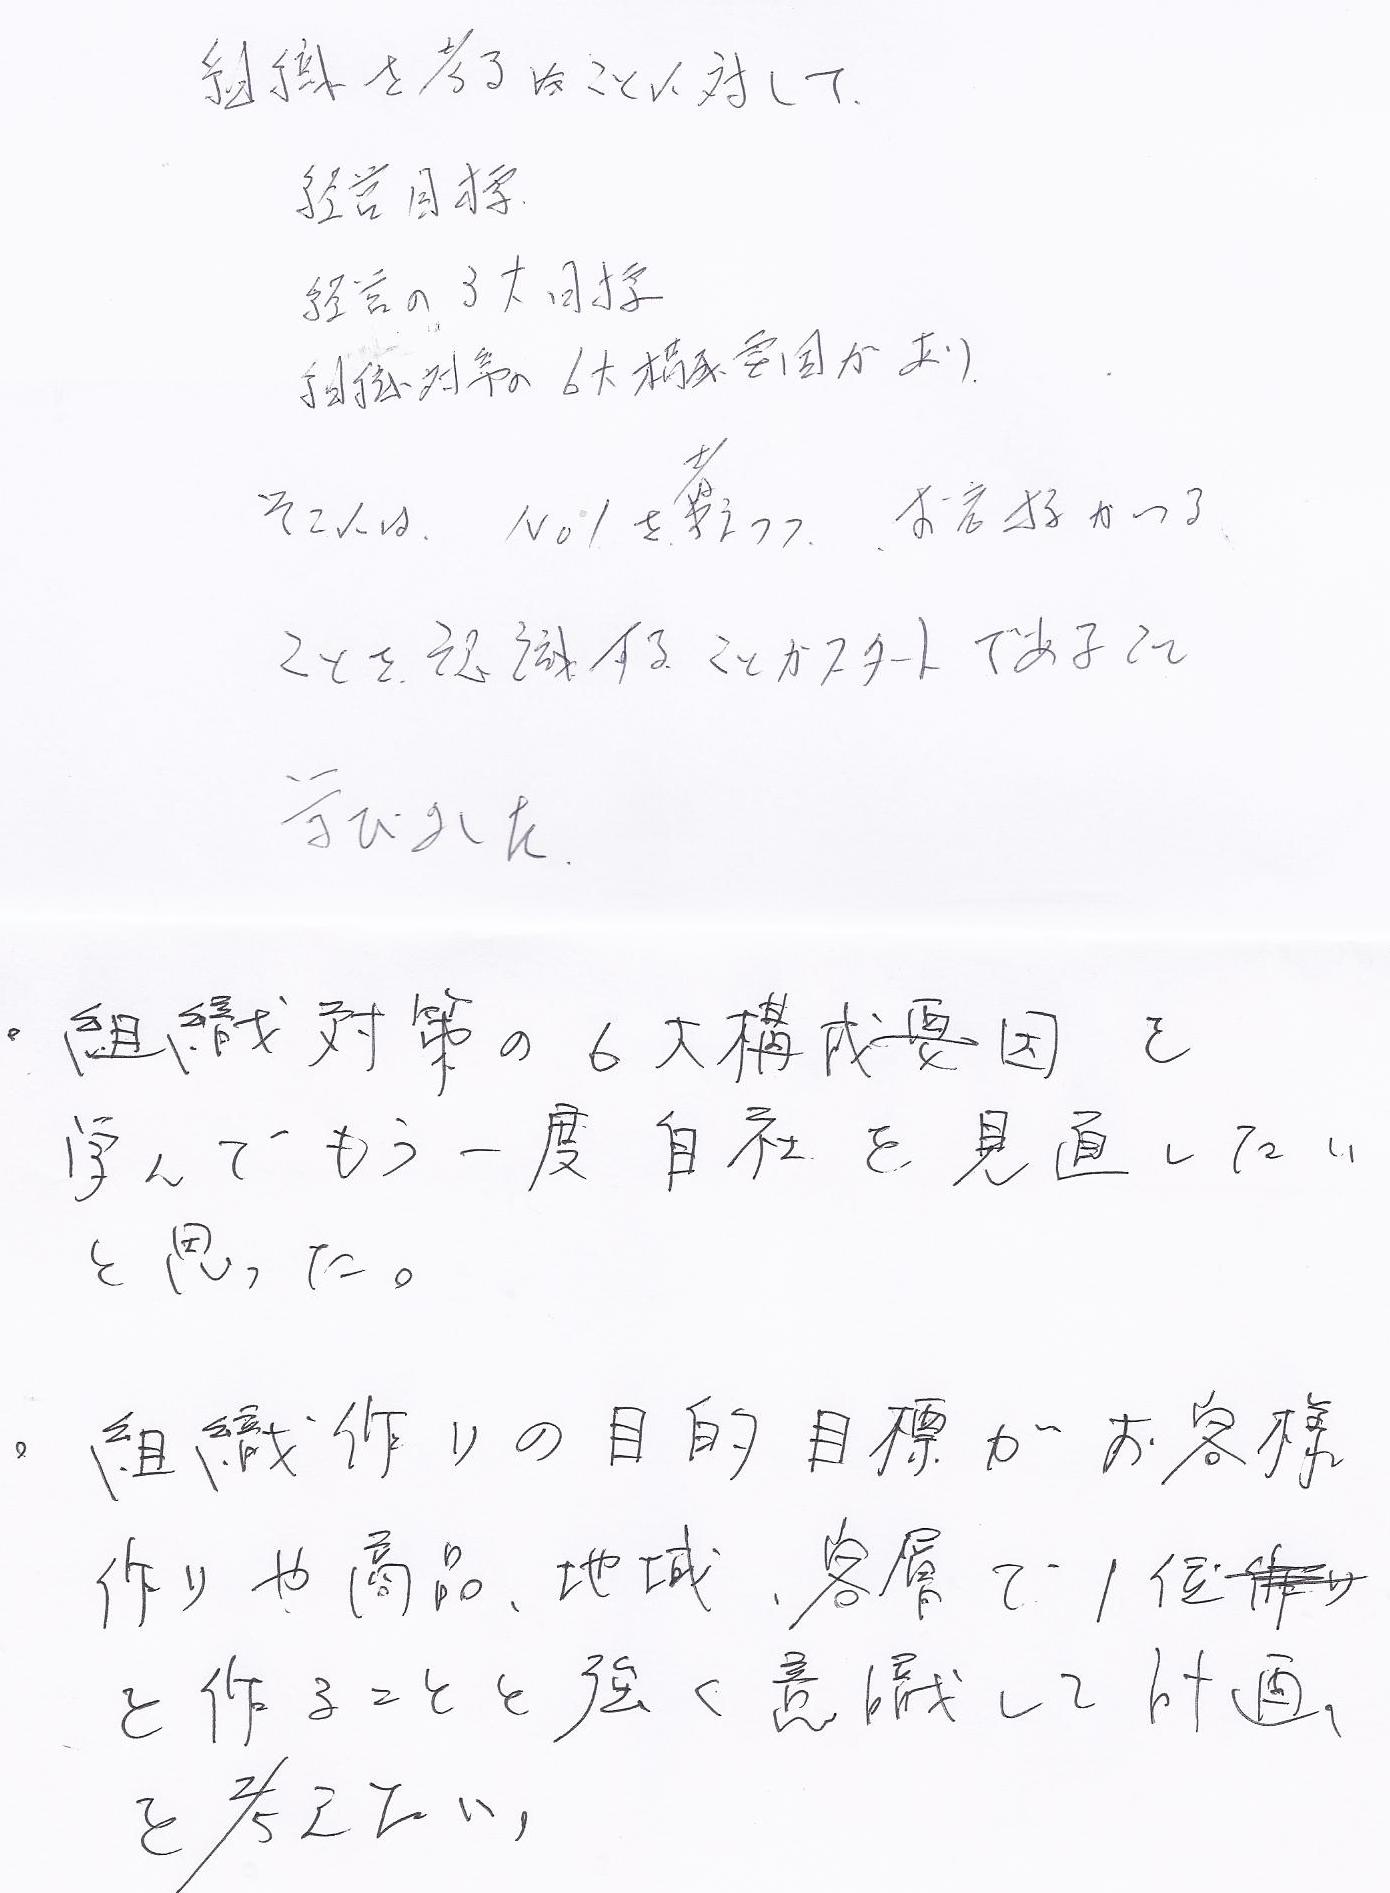 組織を考るはことに対して、
経営目標、
経営の3大目標
組織対策の6大構成要因があり、
そこには、No1を考えつつ、お客様がつる
ことを、認識することがスタートであるこて
学びました。
・組織対策の6大構成要因を
学んでもう一度自社を見直したい
と思った。
・組織作りの目的目標がお客様
作りや商品、地域、客層で1位作り
を作ることと強く意識して計画、
を考えたい,